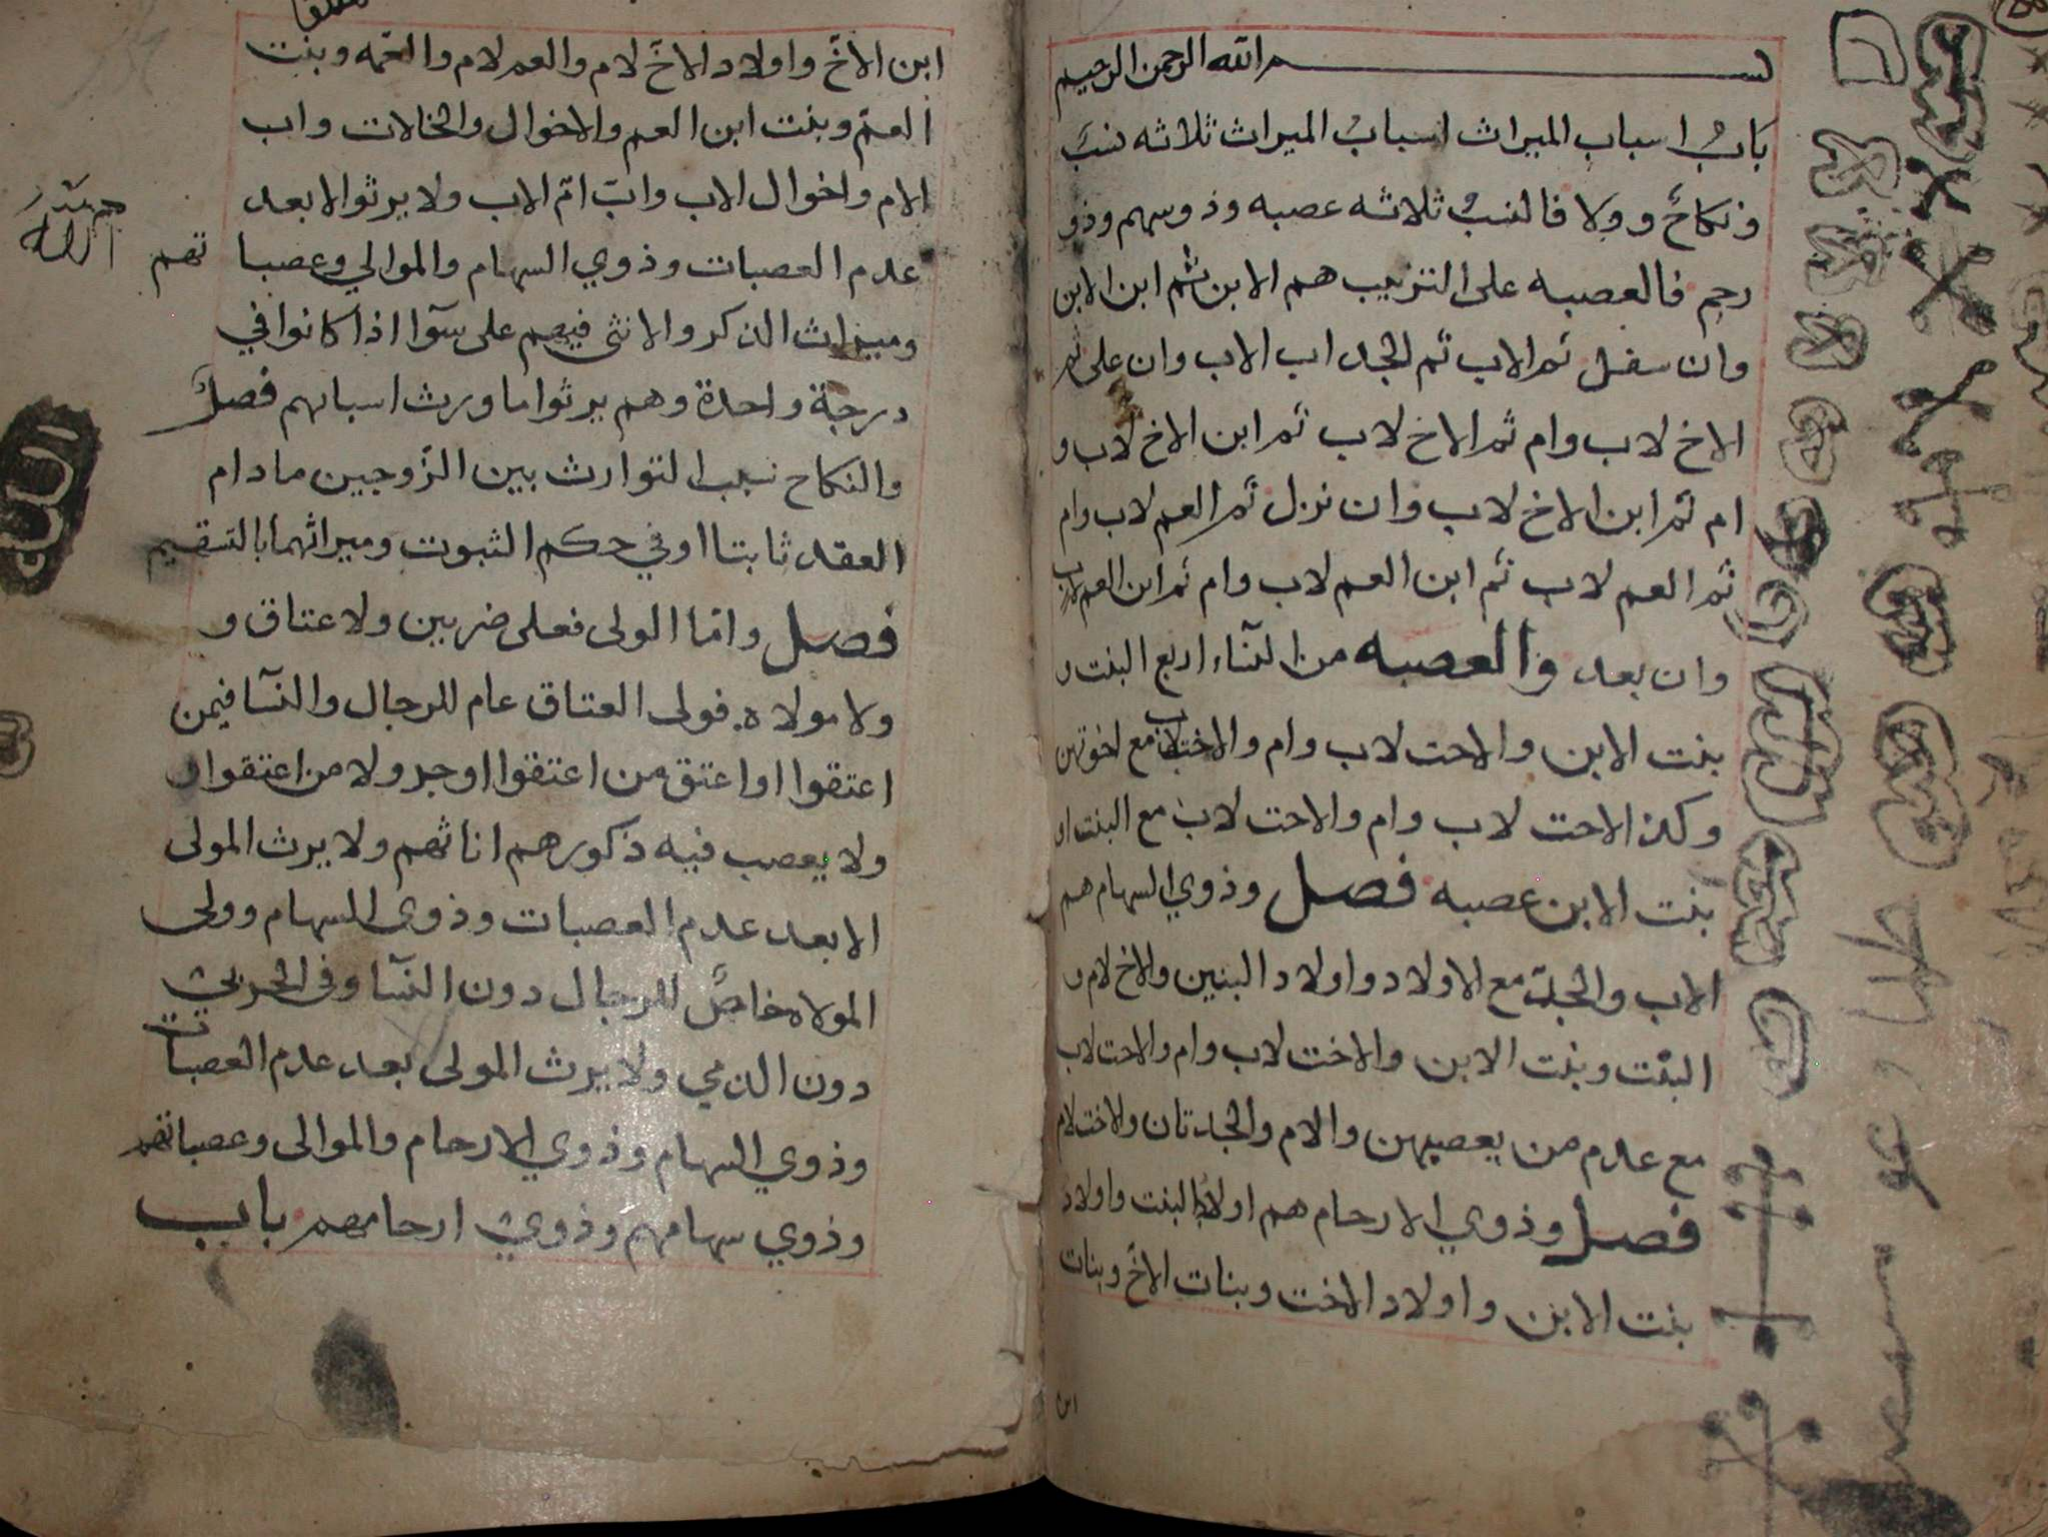 بسم الله الرحمن الرحيم
باب اسباب الميراث اسباب الميراث ثلاثه نسب
ونكاح وولا فالنسب ثلاثه عصبه وذو سهم وذو
رحم فالعصبه على الترتيب هم الابن ثم ابن الابن
وان سفل ثم الاب ثم الجد اب الاب وان على ثم
الاخ لاب وام ثم الاخ لاب ثم ابن الاخ لاب و
ام ثم ابن الاخ لاب وان نزل ثم العم لاب وام
ثم العم لاب ثم ابن العم لاب وام ثم ابن العم لاب
وان بعد والعصبه من النسآء اربع البنت و
بنت الابن والاخت لاب وام والاخت لاب مع اخوتهن
وكذا الاخت لاب وام والاخت لاب مع البنت او
بنت الابن عصبه فصل وذوي السهام هم
الاب والجد مع الاولاد واولاد البنين والاخ لام و
البنت وبنت الابن والاخت لاب وام والاخت لاب
مع عدم من يعصبهن والام والجدتان والاخت لام
فصل وذوي الارحام هم اولاد البنت واولاد
بنت الابن واولاد الاخت وبنات الاخ وبنات
ابن
ابن الاخ واولاد الاخ لام والعم لام والعمه وبنت
العم وبنت ابن العم والاخوال والخالات واب
الام واخوال الاب واب ام الاب ولا يرثوا الا بعد
عدم العصبات وذوي السهام والموالي وعصبا تهم
وميراث الذكر والانثى فيهم على سوآ اذا كانوا في
درجة واحدة وهم يرثوا ما ورث اسبابهم فصل
والنكاح سبب التوارث بين الزوجين ما دام
العقد ثابتا او في حكم الثبوت وميراثهما بالتسقيم
فصل واما الولى فعلى ضربين ولا عتاق و
ولا مولاه فولى العتاق عام للرجال والنسآ فيمن
اعتقوا او اعتق من اعتقوا او جر ولا من اعتقوا
ولا يعصب فيه ذكورهم اناثهم ولا يرث المولى
الا بعد عدم العصبات وذوى السهام وولى
المولاه خاص للرجال دون النسآ وفى الحربي
دون الذمي ولا يرث المولى بعد عدم العصبات
وذوي السهام وذوي الارحام والموالى وعصباتهم
وذوي سهامهم وذوي ارحامهم باب